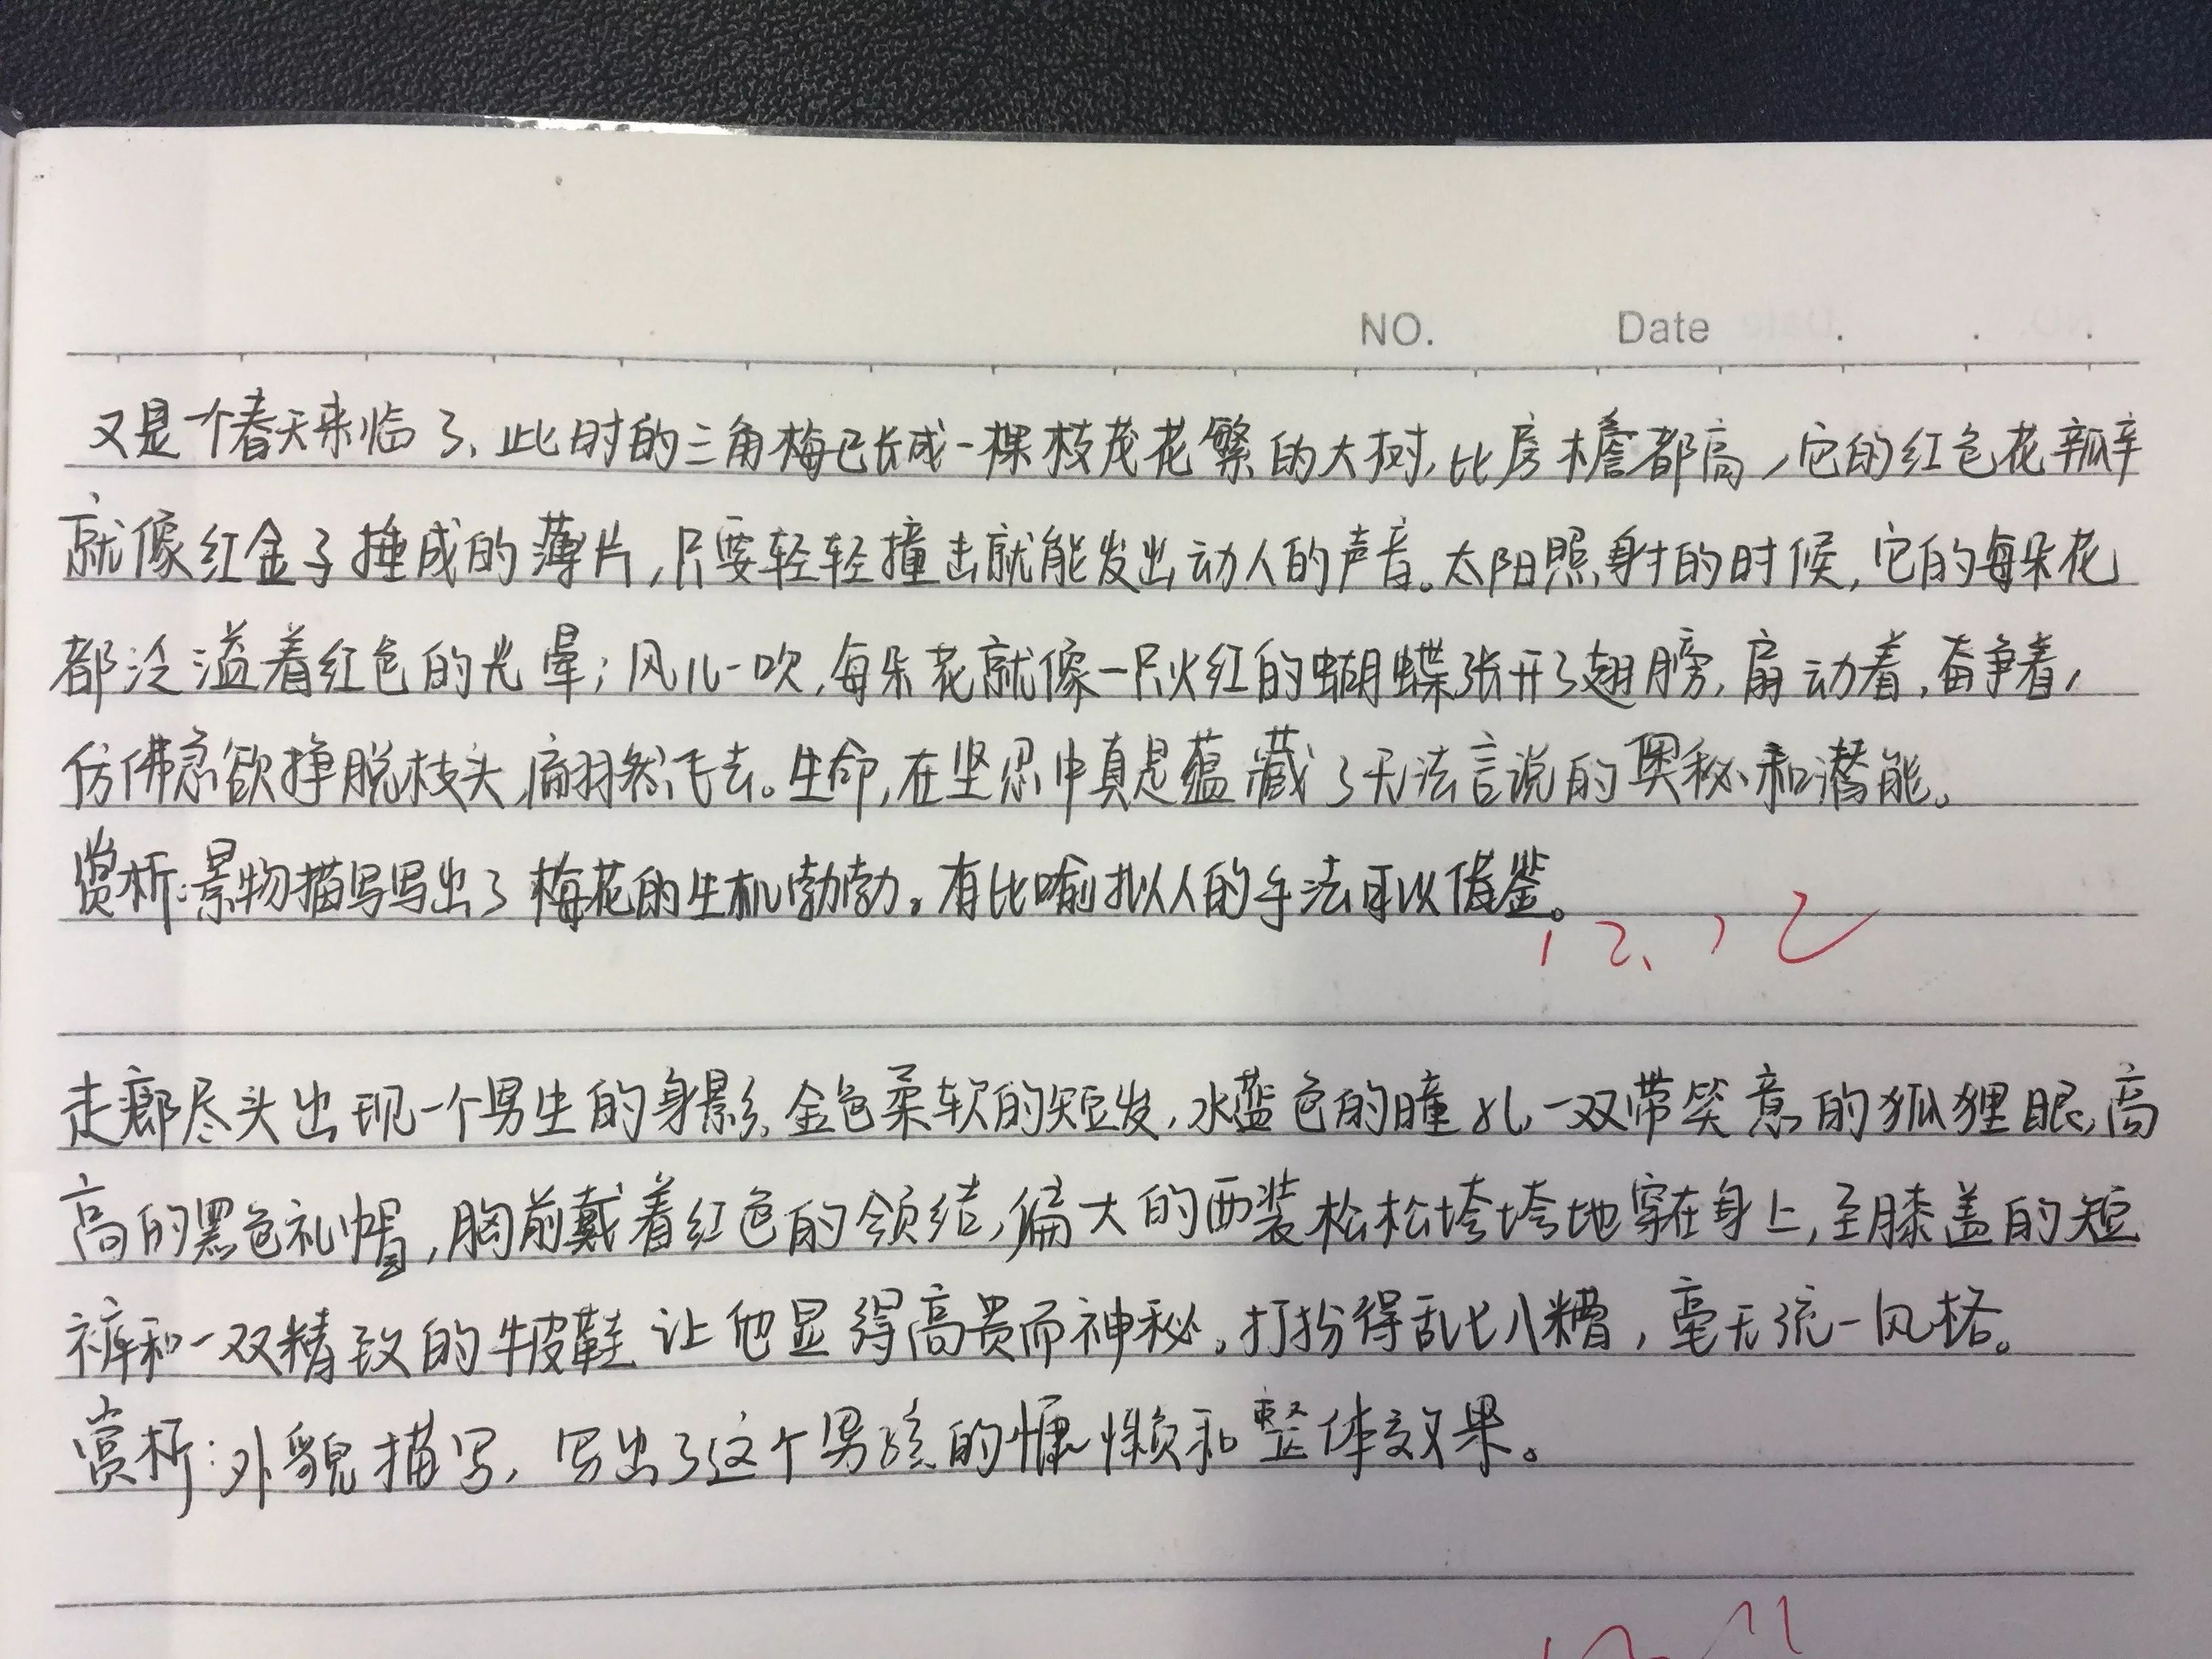 NO. Date . . .
又是一个春天来临了、此时的三角梅已长成一棵枝茂花繁的大树,比房檐都高,它的红色花瓣
就像红金子捶成的薄片,只要轻轻撞击就能发出动人的声音。太阳照射的时候,它的每朵花
都泛溢着红色的光晕;风儿一吹,每朵花就像一只火红的蝴蝶张开了翅膀,扇动着,奋争着,
仿佛急欲挣脱枝头,翩然飞去。生命,在坚忍中真是蕴藏了无法言说的奥秘和潜能。
赏析:景物描写写出了梅花的生机勃勃。有比喻拟人的手法可以借鉴。
12、12
走廊尽头出现一个男生的身影,金色柔软的短发,水蓝色的瞳孔,一双带笑意的狐狸眼,高
高的黑色礼帽,胸前戴着红色的领结,偏大的西装松松垮垮地穿在身上,至膝盖的短
裤和一双精致的牛皮鞋让他显得高贵而神秘。打扮得乱七八糟,毫无统一风格。
赏析:外貌描写,写出了这个男孩的慵懒和整体效果。